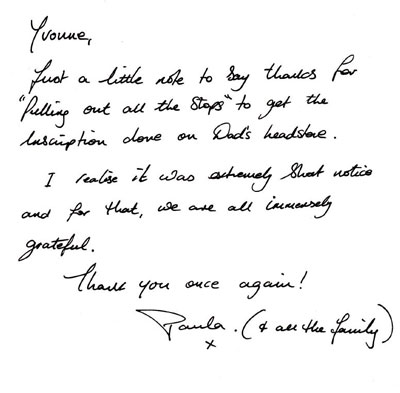 Yvonne,
Just a little note to say thanks for
"Pulling out all the Stops" to get the
Inscription done on Dad's headstone.
I realise it was extremely Short notice
and for that, we are all immensely
grateful.
Thank you once again!
Paula. (& all the family)
x